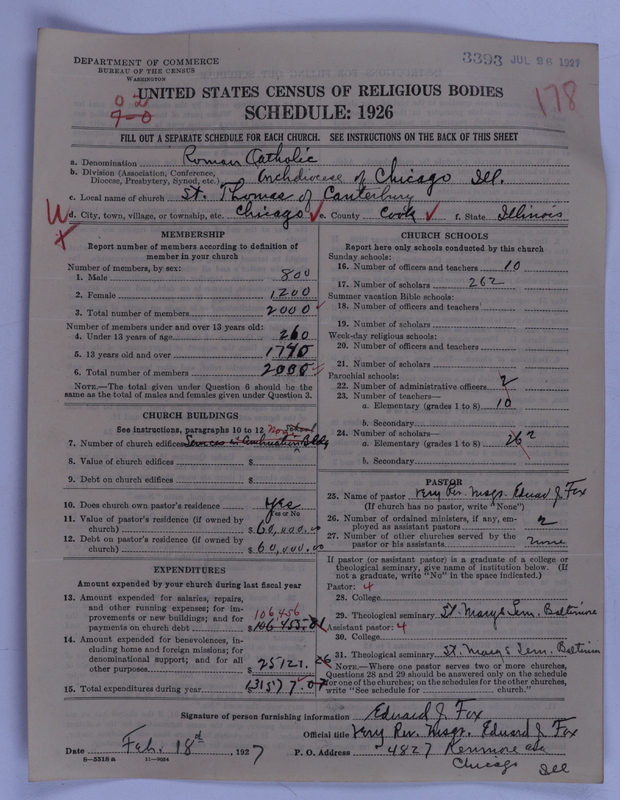 DEPARTMENT OF COMMERCE
BUREAU OF THE CENSUS
WASHINGTON
3393 JUL 26 1927
178
UNITED STATES CENSUS OF RELIGIOUS BODIES
SCHEDULE: 1926
FILL OUT A SEPARATE SCHEDULE FOR EACH CHURCH. SEE INSTRUCTIONS ON THE BACK OF THIS SHEET
a. Denomination Roman Catholic
b. Division (Association, Conference, Diocese, Presbytery, Synod, etc.) Archdiocese of Chicago Ill.
c. Local name of church St. Thomas of Canterbury
d. City, town, village, or township, etc. Chicago e. County Cook f. State Illinois
MEMBERSHIP
Report number of members according to definition of
member in your church
Number of members, by sex:
1. Male 800
2. Female 1200
3. Total number of members 2000
Number of members under and over 13 years old:
4. Under 13 years of age 260
5. 13 years old and over 1740
6. Total number of members 2000
NOTE.—The total given under Question 6 should be the
same as the total of males and females given under Question 3.
CHURCH BUILDINGS
See instructions, paragraphs 10 to 12
7. Number of church edifices
8. Value of church edifices $
9. Debt on church edifices $
10. Does church own pastor's residence Yes
Yes or No
11. Value of pastor's residence (if owned by
church) $ 60,000.00
12. Debt on pastor's residence (if owned by
church) $ 60,000.00
EXPENDITURES
Amount expended by your church during last fiscal year
13. Amount expended for salaries, repairs,
and other running expenses; for im-
provements or new buildings; and for
payments on church debt $ 106456
14. Amount expended for benevolences, in-
cluding home and foreign missions; for
denominational support; and for all
other purposes $ 25121.26
15. Total expenditures during year
CHURCH SCHOOLS
Report here only schools conducted by this church
Sunday schools:
16. Number of officers and teachers 10
17. Number of scholars 262
Summer vacation Bible schools:
18. Number of officers and teachers
19. Number of scholars
Week-day religious schools:
20. Number of officers and teachers
21. Number of scholars
Parochial schools:
22. Number of administrative officers 2
23. Number of teachers—
a. Elementary (grades 1 to 8) 10
b. Secondary
24. Number of scholars—
a. Elementary (grades 1 to 8) 262
b. Secondary
PASTOR
25. Name of pastor Very Rev. Msgr. Eduard J. Fox
(If church has no pastor, write "None")
26. Number of ordained ministers, if any, em-
ployed as assistant pastors 2
27. Number of other churches served by the
pastor or his assistants none
If pastor (or assistant pastor) is a graduate of a college or
theological seminary, give name of institution below. (If
not a graduate, write "No" in the space indicated.)
Pastor: 4
28. College
29. Theological seminary St. Mary's Sem. Baltimore
Assistant pastor: 4
30. College
31. Theological seminary St. Mary's Sem. Baltimore
NOTE.—Where one pastor serves two or more churches,
Questions 28 and 29 should be answered only on the schedule
for one of the churches; on the schedules for the other churches,
write "See schedule for church."
Signature of person furnishing information Eduard J. Fox
Official title Very Rev. Msgr. Eduard J. Fox
Date Feb. 18th, 1927 P. O. Address 4827 Kenmore Ave
Chicago Ill
8—5518 a 11—9024